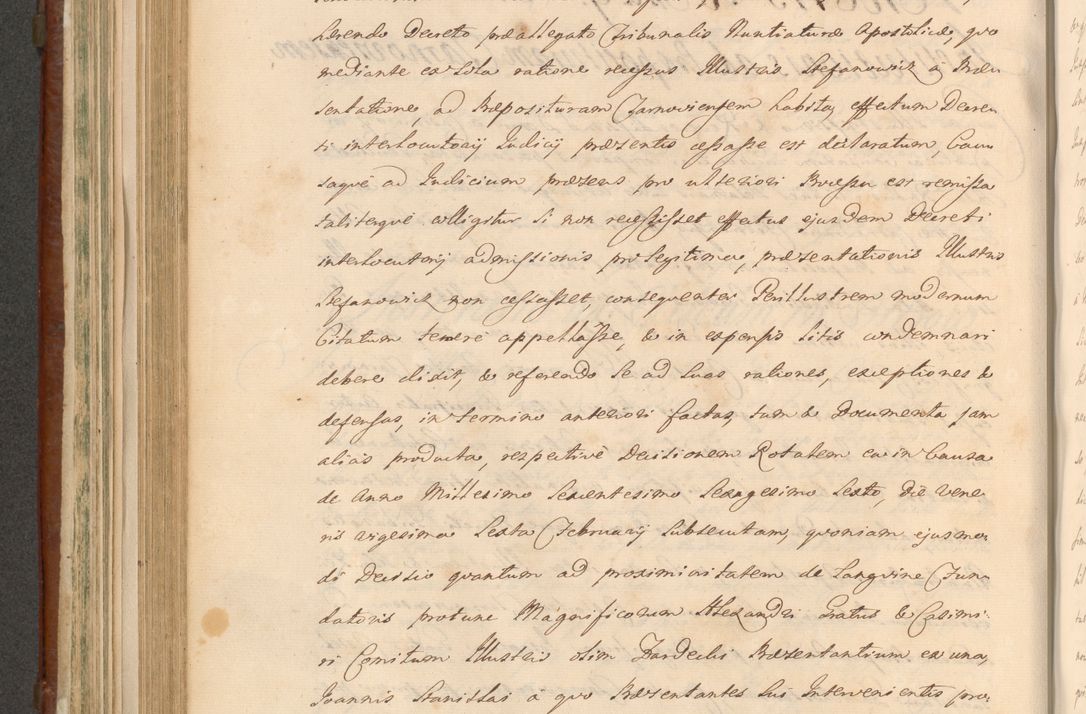 herendo Decreto præallegato Tribunalis Nuntiaturæ Apostolicæ, quo
mediante ex sola ratione recessus Illustris Stefanowicz à Præ
sentatione, ad Præposituram Tarnoviensem habita, effectum Decre
ti interlocutorij Iudicij præsentis cessasse est declaratum, Cau
saquè ad Iudicium præsens pro ulteriori Processu est remissa
talitérquè colligitur si non recessisset effectus ejusdem Decreti
interlocutorij admissionis pro legitima, præsentationis Illustris
Stefanowicz non cessasset, consequenter Perillustrem modernum
Citatum temerè appellasse, & in expensis litis condemnari
debere dixit, & referendo se ad suas rationes, exceptiones &
defensas, in termino anteriori factas, tum & Documenta jam
alias producta, respectivè Decisionem Rotalem ea in Causa
de Anno Millesimo Sexcentesimo Sexagesimo Sexto, Die Vene
ris vigesima Sexta Februarij subsecutam, quoniam ejusmo
di Decisio quantum ad proximiritatem de Sanguine Fun
datoris protunc Magnificorum Alexandri Gratus & Casimi
ri Comitum Illustris olim Zardecki Præsentantium ex una,
Joannis Stanislai à quo Præsentantes sui Intervenientis pro